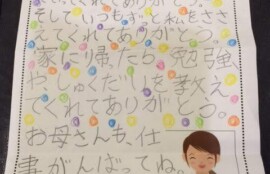 くれてありがとう。
そしていつもずっと私をささ
えてくれてありがとう。
家に帰ったら勉強
や、しゅくだいを教え
てくれてありがとう。
お母さんも、仕
事がんばってね。